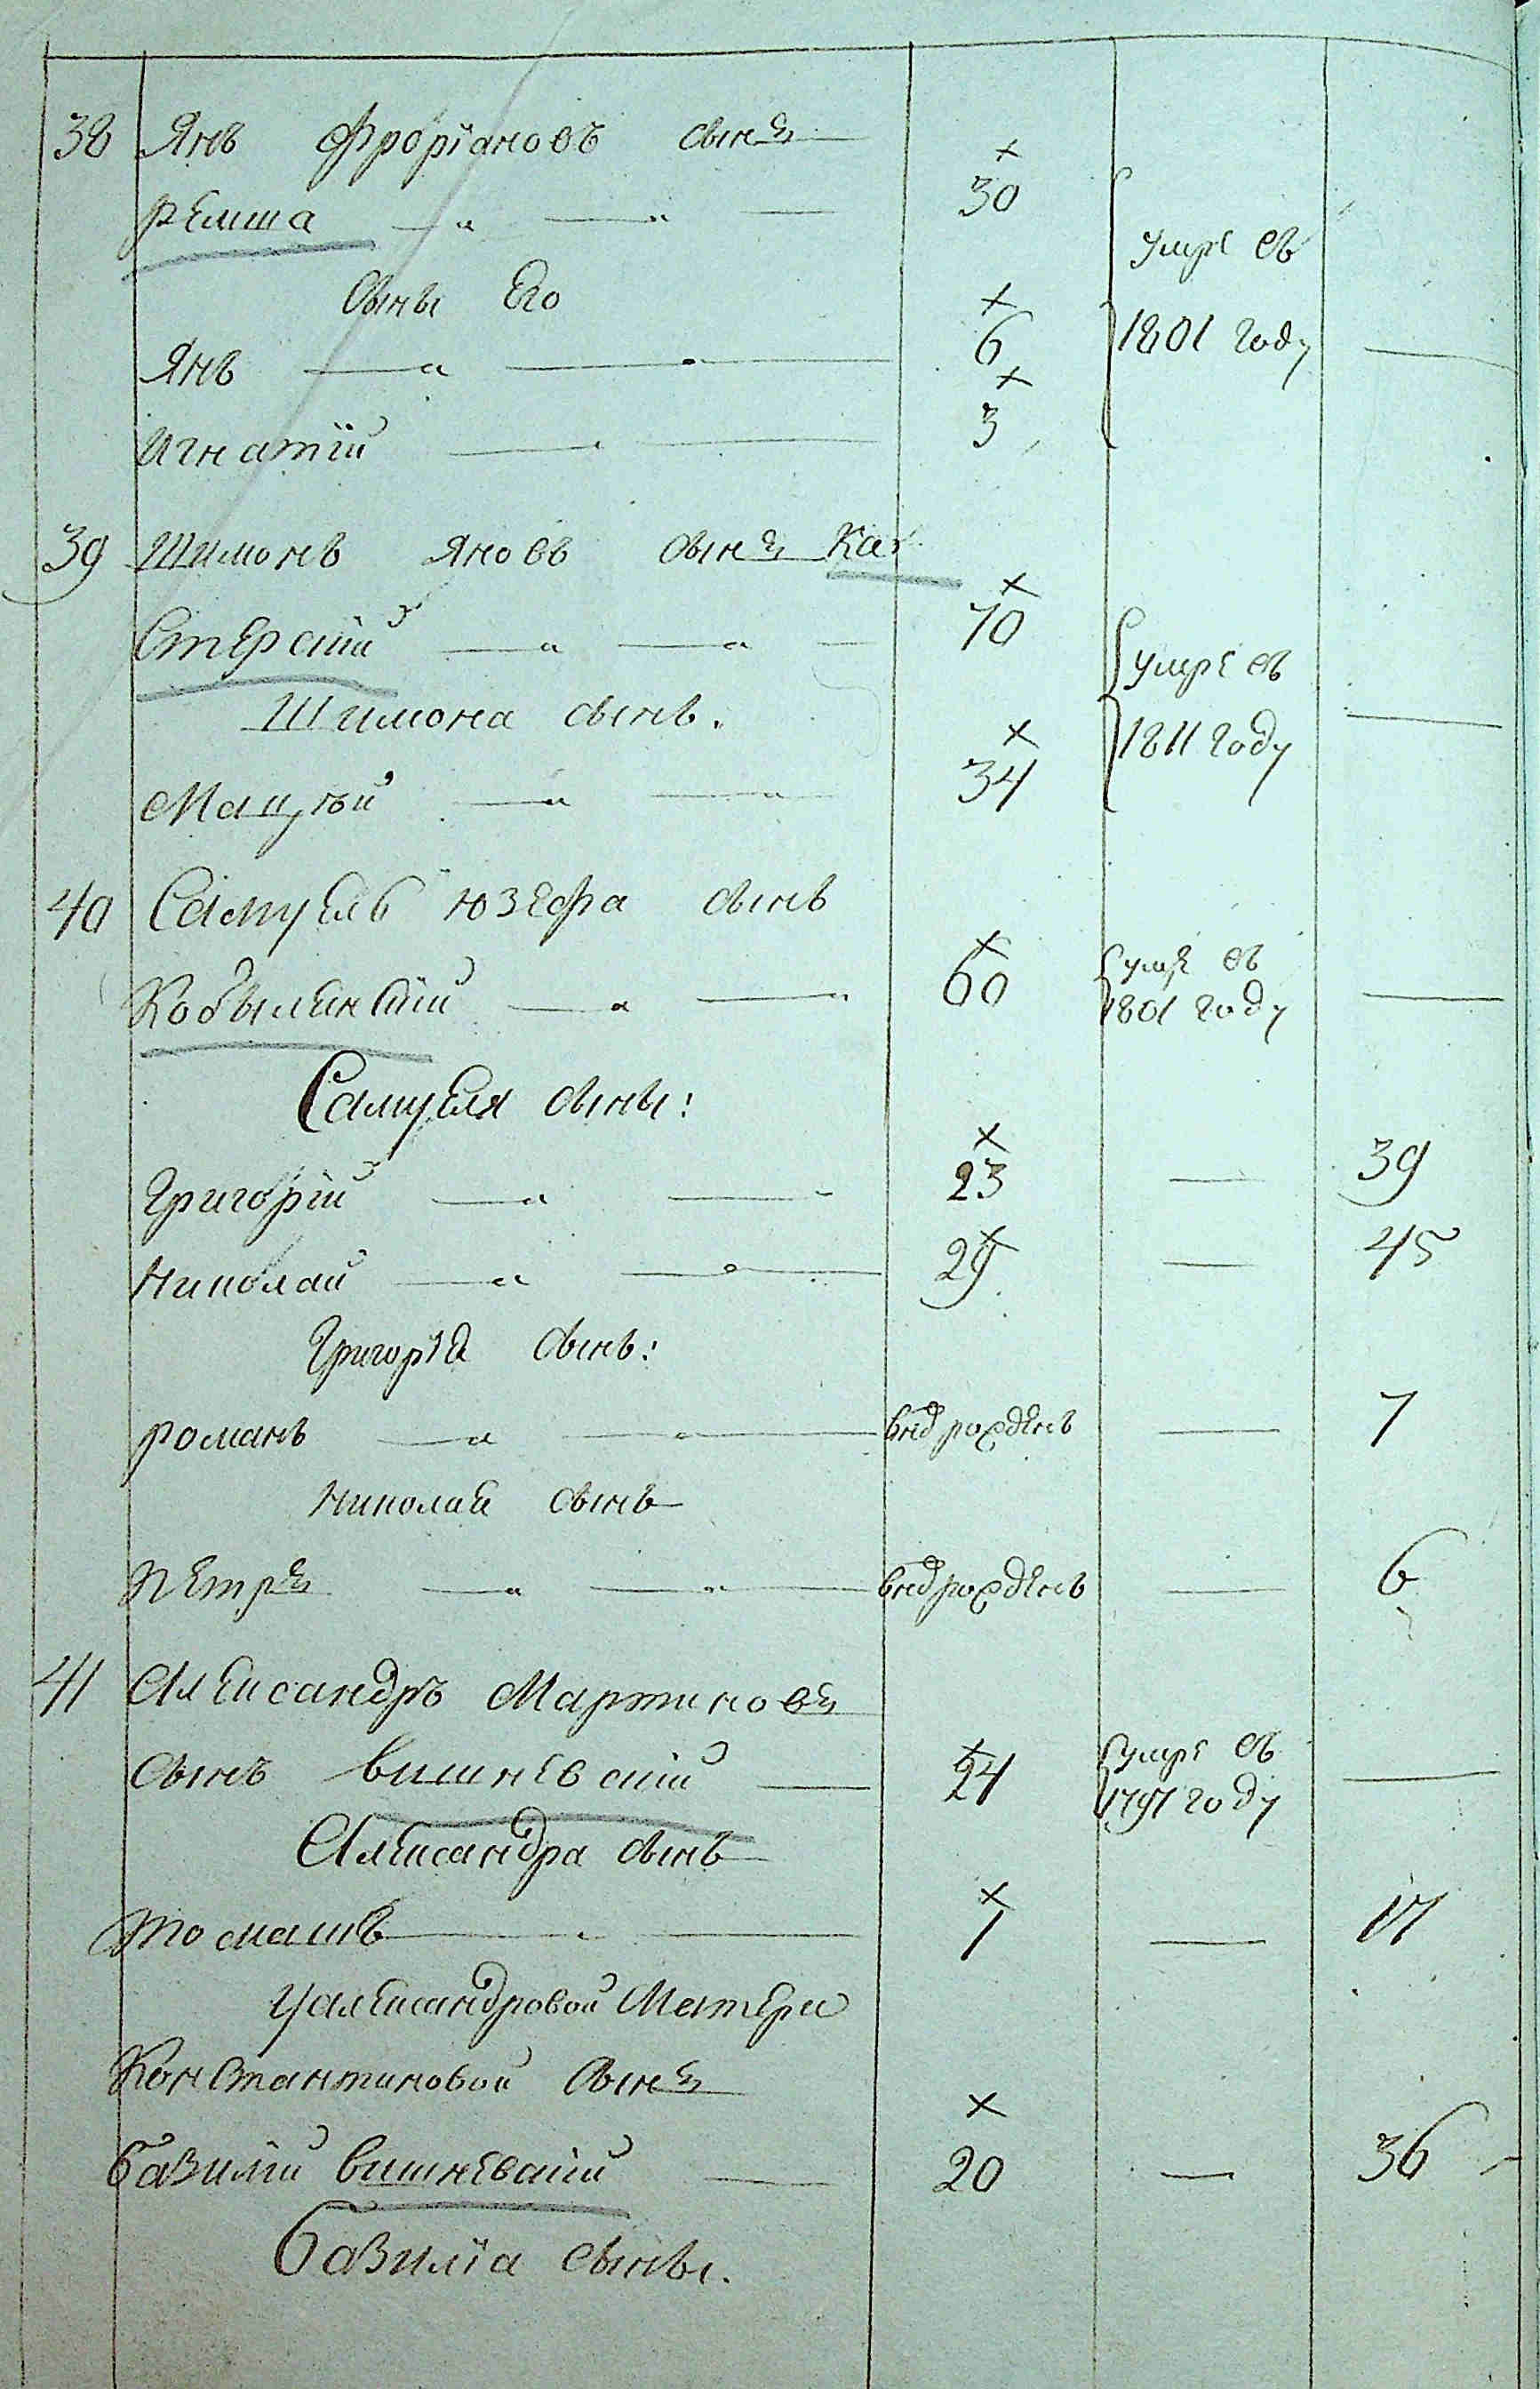 38 Янъ Фроріановъ сынъ
Ремша 30
умре въ
Сыны Его
Янъ 6 1801 году —
Игнатій 3
39 Шимонъ Яновъ сынъ Ка
Стерскій 70
умре въ
Шимона сынъ.
1811 году —
Мацѣй 34
40 Самуель Юзефа сынъ
умре въ
Кобылинскій 60 1801 году —
Самуеля сыны:
Григорій 23 — 39
Николай 29 — 45
Григорія сынъ:
Романъ — 7
Николая сынъ
Петръ — 6
41 Александръ Мартиновъ
умре въ
сынъ Вишневскій 24 1797 году —
Александра сынъ
Томашъ 1 — 17
У Александровой Матери
Константиновой сынъ
Базилій Вишневскій 20 — 36
Базилія сыны.